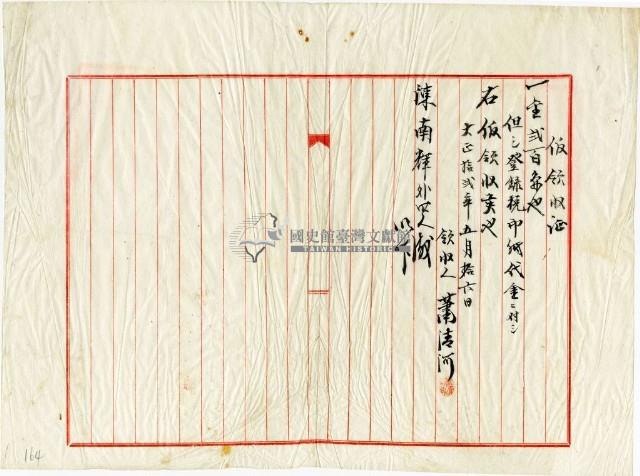 仮領収証
一金弐百余也
但シ登録税印紙代金ニ対シ
右仮領収候也
大正拾弐年五月拾六日
領収人 蕭清河
陳南輝外四人殿
國史館臺灣文獻館
TAIWAN HISTORIC
164